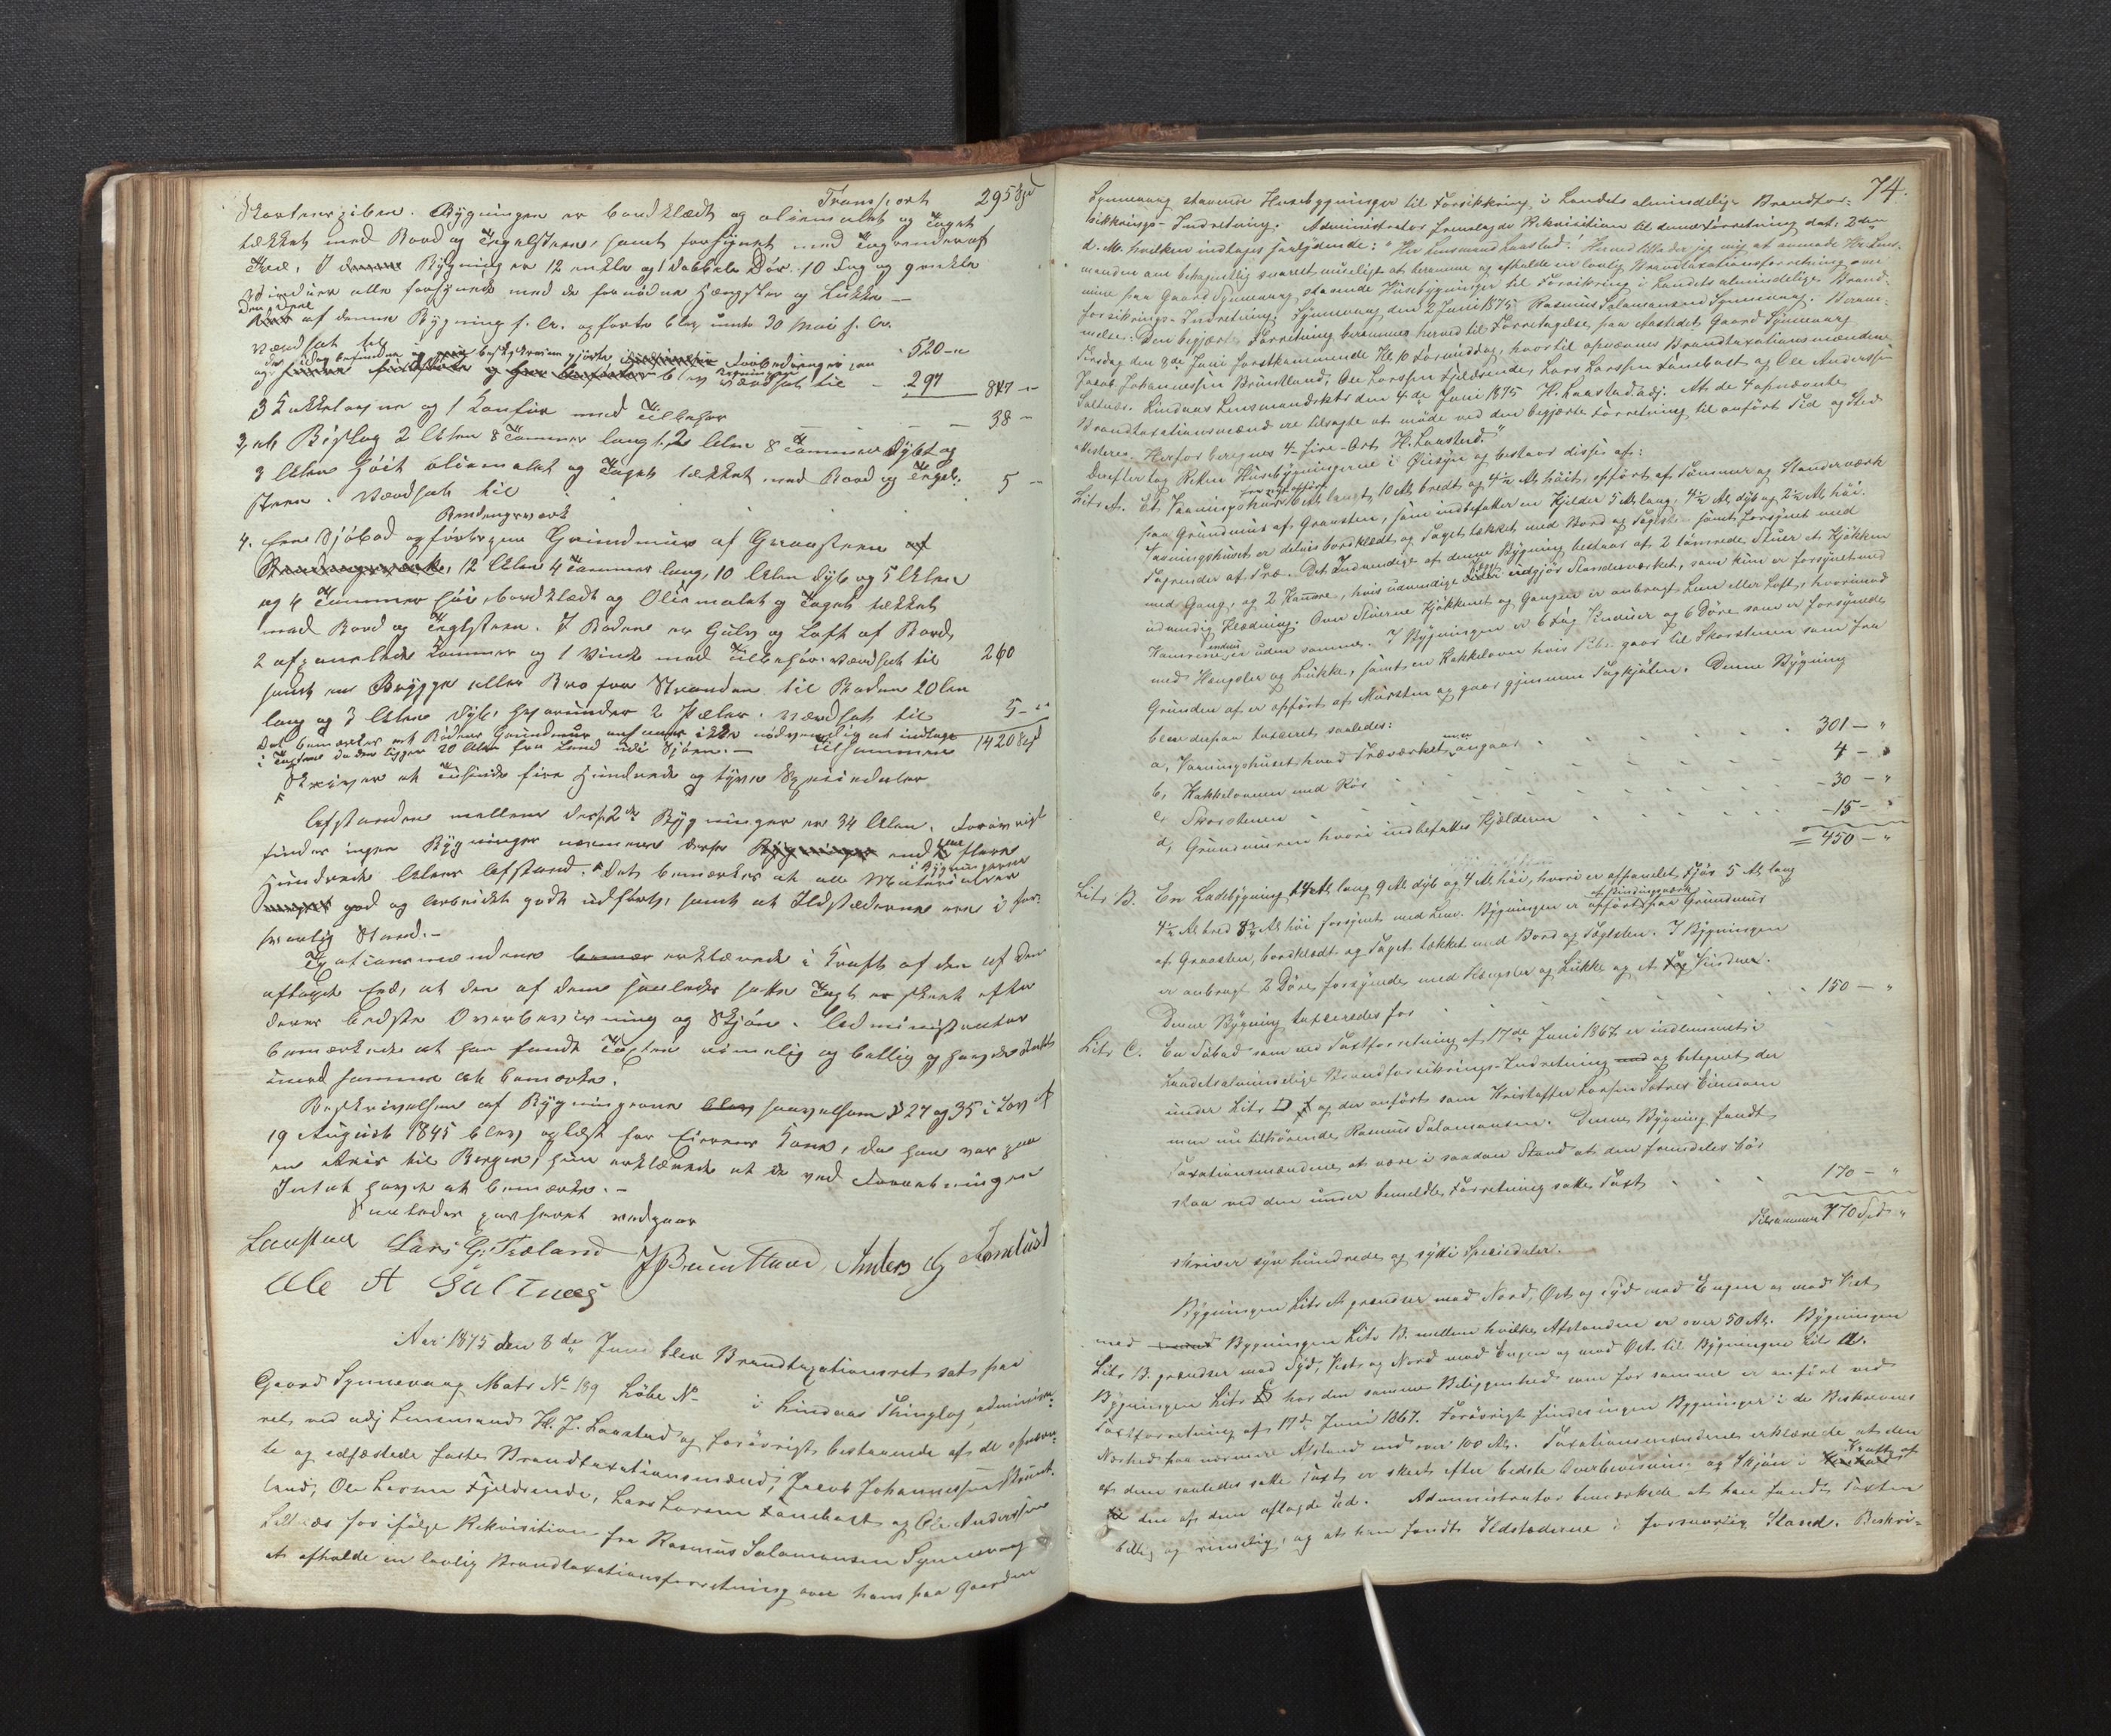 Transport 295 Spd
Skorstenspiben. Bygningen er bordklædt og oliemalet og Taget
tækket med Bord og Tegelsteen, samt forsynet med Tagrender af
Træ. I denne Bygning er 12 enkle og 1 dobbelt Dør. 10 Fag og 9 enkle
Vinduer alle forsynede med de fornødne Hængsler og Lukke —
Den Deel
af denne Bygning s. Br. opførte blev under 30 Mai f. Br.
værdsat til 520 -
og blev værdsat til - 297 817 -
3 Kakkelovne og 1 Komfur med Tilbehør - - 38 -
3, et Bislag 2 Alen 8 Tommer langt, 2 Alen 8 Tommer Dybt og
3 Alen høit oliemalet og Taget tækket med Bord og Tegel-
steen. Værdsat til 5 -
Bindingsværk
4. Een Sjøbod opført paa Grundmur af Graasteen af
Bindingsværk, 12 Alen 4 Tommer lang, 10 Alen dyb og 5 Alen
og 4 Tommer høi, bordklædt og Oliemalet og Taget tækket
med Bord og Teglsteen. I Boden er Gulv og Loft af Bord,
2 afpanelede Kammer og 1 Vinde med Tilbehør. Værdsat til 260
samt en Brygge eller Bro fra Stranden til Boden 20 Alen
lang og 3 Alen dyb, hvorunder 2 Pæler. Værdsat til 5 - "
Det bemærkes at Bodens Grundmur ansaaes ikke nødvendig at indtage
i Taxten da den ligger 20 Alen fra Land ude i Sjøen. — Tilsammen 1420 Spd
Skriver et Tusinde fire Hundrede og tyve Speciedaler
Afstanden mellem disse 2de Bygninger er 34 Alen. Forøvrigt
findes ingen Bygninger nærmere disse Bygninger end flere
Hundrede Alens Afstand. Det bemærkes at alle Materialier
i Bygningerne
god og Arbeidet godt udført, samt at Ildstederne ere i for-
svarlig Stand. —
Taxationsmændene erklærede i Kraft af den af dem
aflagte Eed, at den af dem saaledes satte Taxt er skeet efter
deres bedste Overbevisning og Skjøn. Administrator
bemærkede at han fandt Taxten rimelig og billig og havde Intet
imod samme at bemærke.
Beskrivelsen af Bygningerne blev saavelsom § 27 og 35 i Lov af
19 August 1845 blev oplæst for Eierens Kone, da han var paa
en Reis til Bergen; hun erklærede at de ved Forretningen
Intet havde at bemærke. —
Saaledes passeret vedgaaer
Laastad Lars G. Træland J Bruntland Anders Kj Tonelust
Ole A Saltnæs
Aar 1875 den 8de Juni blev Brandtaxationsret sat paa
Gaard Synnevaag Matr № 139 Løbe № i Lindaas Thinglag, administre-
ret, ved adj Lensmand H. J. Laastad og forøvrigt bestaaende af de opnævn-
te og edfæstede faste Brandtaxationsmænd, Jacob Johannessen Brunt-
land, Ole Larsen Fjeldsende, Lars Larsen Fanebust og Ole Anderssen
Saltnæs for ifølge Rekvisition fra Rasmus Salamonsen Synnevaag
at afholde en lovlig Brandtaxationsforretning over hans paa Gaarden
74.
Synnevaag staaende Husebygninger til Forsikkring i Landets almindelige Brandfor-
sikkrings-Indretning. Administrator fremlagde Rekvisition til denne Forretning dat. 2den
d. M. hvilken indtages saalydende: "Hr Lensmand Laastad! Herved tillader jeg mig at anmode Hr Lens-
manden om behageligst snarest mueligst at beramme og afholde en lovlig Brandtaxationsforretning over
mine paa Gaard Synnevaag staaende Husebygninger til Forsikring i Landets almindelige Brand-
forsikrings-Indretning. Synnevaag den 2 Juni 1875 Rasmus Salamonsen Synnevaag. Beram-
melse: Den begjærte Forretning berammes herved til Foretagelse paa Aastedet Gaard Synnevaag
Tirsdag den 8de Juni førstkommende Kl. 10 Formiddag, hvortil opnævnes Brandtaxationsmændene
Jacob Johannessen Bruntland, Ole Larssen Fjeldsende, Lars Larssen Fanebust og Ole Anderssen
Saltnæs. Lindaas Lensmandskt den 4de Juni 1875 H. Laastad. adj. At de 4 opnævnte
Brandtaxationsmænd ere tilsagte at møde ved den begjærte Forretning til anført Tid og Sted
attesteres. Herfor beregnes 4 - fire - Ort H. Laastad."
Derefter tog Retten Husebygningerne i Øiesyn og bestaar disse af:
Litr A. Et Vaaningshuus 6 Al. langt, 10 Al. bredt og 4½ Al. høit, opført af Tømmer og Standerværk
paa Grundmur af Graasten, som indbefatter en Kjelder 5 Al. lang, 4½ Al. dyb og 2½ Al. høi.
Vaaningshuset er delvis bordklædt og Taget tækket med Bord og Teglsten samt forsynet med
Tagrender af Træ. Det Indvendige af denne Bygning bestaar af 2 tømrede Stuer et Kjøkken
med Gang, og 2 Kamre, hvis udvendige Vægge udgjør Standerværket, som kun er forsynet med
udvendig Klædning. Over Stuerne Kjøkkenet og Gangen er anbragt Lem eller Loft, hvorimod
Kamrene endnu er uden samme. I Bygningen er 6 Fag Vinduer og 6 Døre som er forsynede
med Hængsler og Lukke, samt en Kakkelovn hvis Pibe gaar til Skorstenen som fra
Grunden af er opført af Mursten og gaar gjennem Tagkjølen. Denne Bygning
blev derpaa taxeret, saaledes:
a, Vaaningshuset hvad Træværket angaar 301 - "
b, Kakkelovnen med Rør 4 - "
c, Skorstenen 30 - "
d, Grundmuren hvori indbefattes Kjælderen 15 - "
= 450 - "
Litr. B. En Ladebygning 14 Al. lang 9 Al dyb og 4 Al. høi, hvori er afpanelet Fjøs 5 Al. lang
4½ Al bred 3¾ Al. høi forsynet med Lem. Bygningen er af Bindingsværk opført paa Grundmur
af Graasten, bordklædt og Taget tækket med Bord og Teglsten. I Bygningen
er anbragt 2 Døre, forsynede med Hængsler og Lukke og et Fag Vinduer.
Denne Bygning taxeredes for 150 - "
Litr C. En Søbod som ved Taxtforretning af 17de Juni 1867 er indlemmet i
Landets almindelige Brandforsikrings-Indretning og betegnet der
under Litr D og der anført som Kristoffer Larsen Sætres Eiendom
men nu tilhørende Rasmus Salamonsen. Denne Bygning fandt
Taxationsmændene at være i saadan Stand at den fremdeles bør
staa ved den under bemeldte Forretning satte Taxt, 170 - "
Tilsammen 770 Spd "
skriver syv hundrede og sytti Speciedaler.
Bygningen Litr A grændser mod Nord, Øst og Syd mod Engen og mod Vest
med Bygningen Litr B. mellem hvilke Afstanden er over 50 Al. Bygningen
Litr B. grændser mod Syd, Vest og Nord mod Engen og mod Øst til Bygningen Litr A.
Bygningen Litr C har den samme Beliggenhed som for samme er anført ved
Taxtforretning af 17de Juni 1867. Forøvrigt findes ingen Bygninger i de Beskrevnes
Nærhed paa nærmere Afstand end over 100 Al. Taxationsmændene erklærede at den
af dem saaledes satte Taxt er skeet efter bedste Overbevisning og Skjøn i Kraft af
den af dem aflagte Ed. Administrator bemærkede at han fandt Taxten
billig og rimelig, og at han fandt Ildstederne i forsvarlig Stand. Beskri-